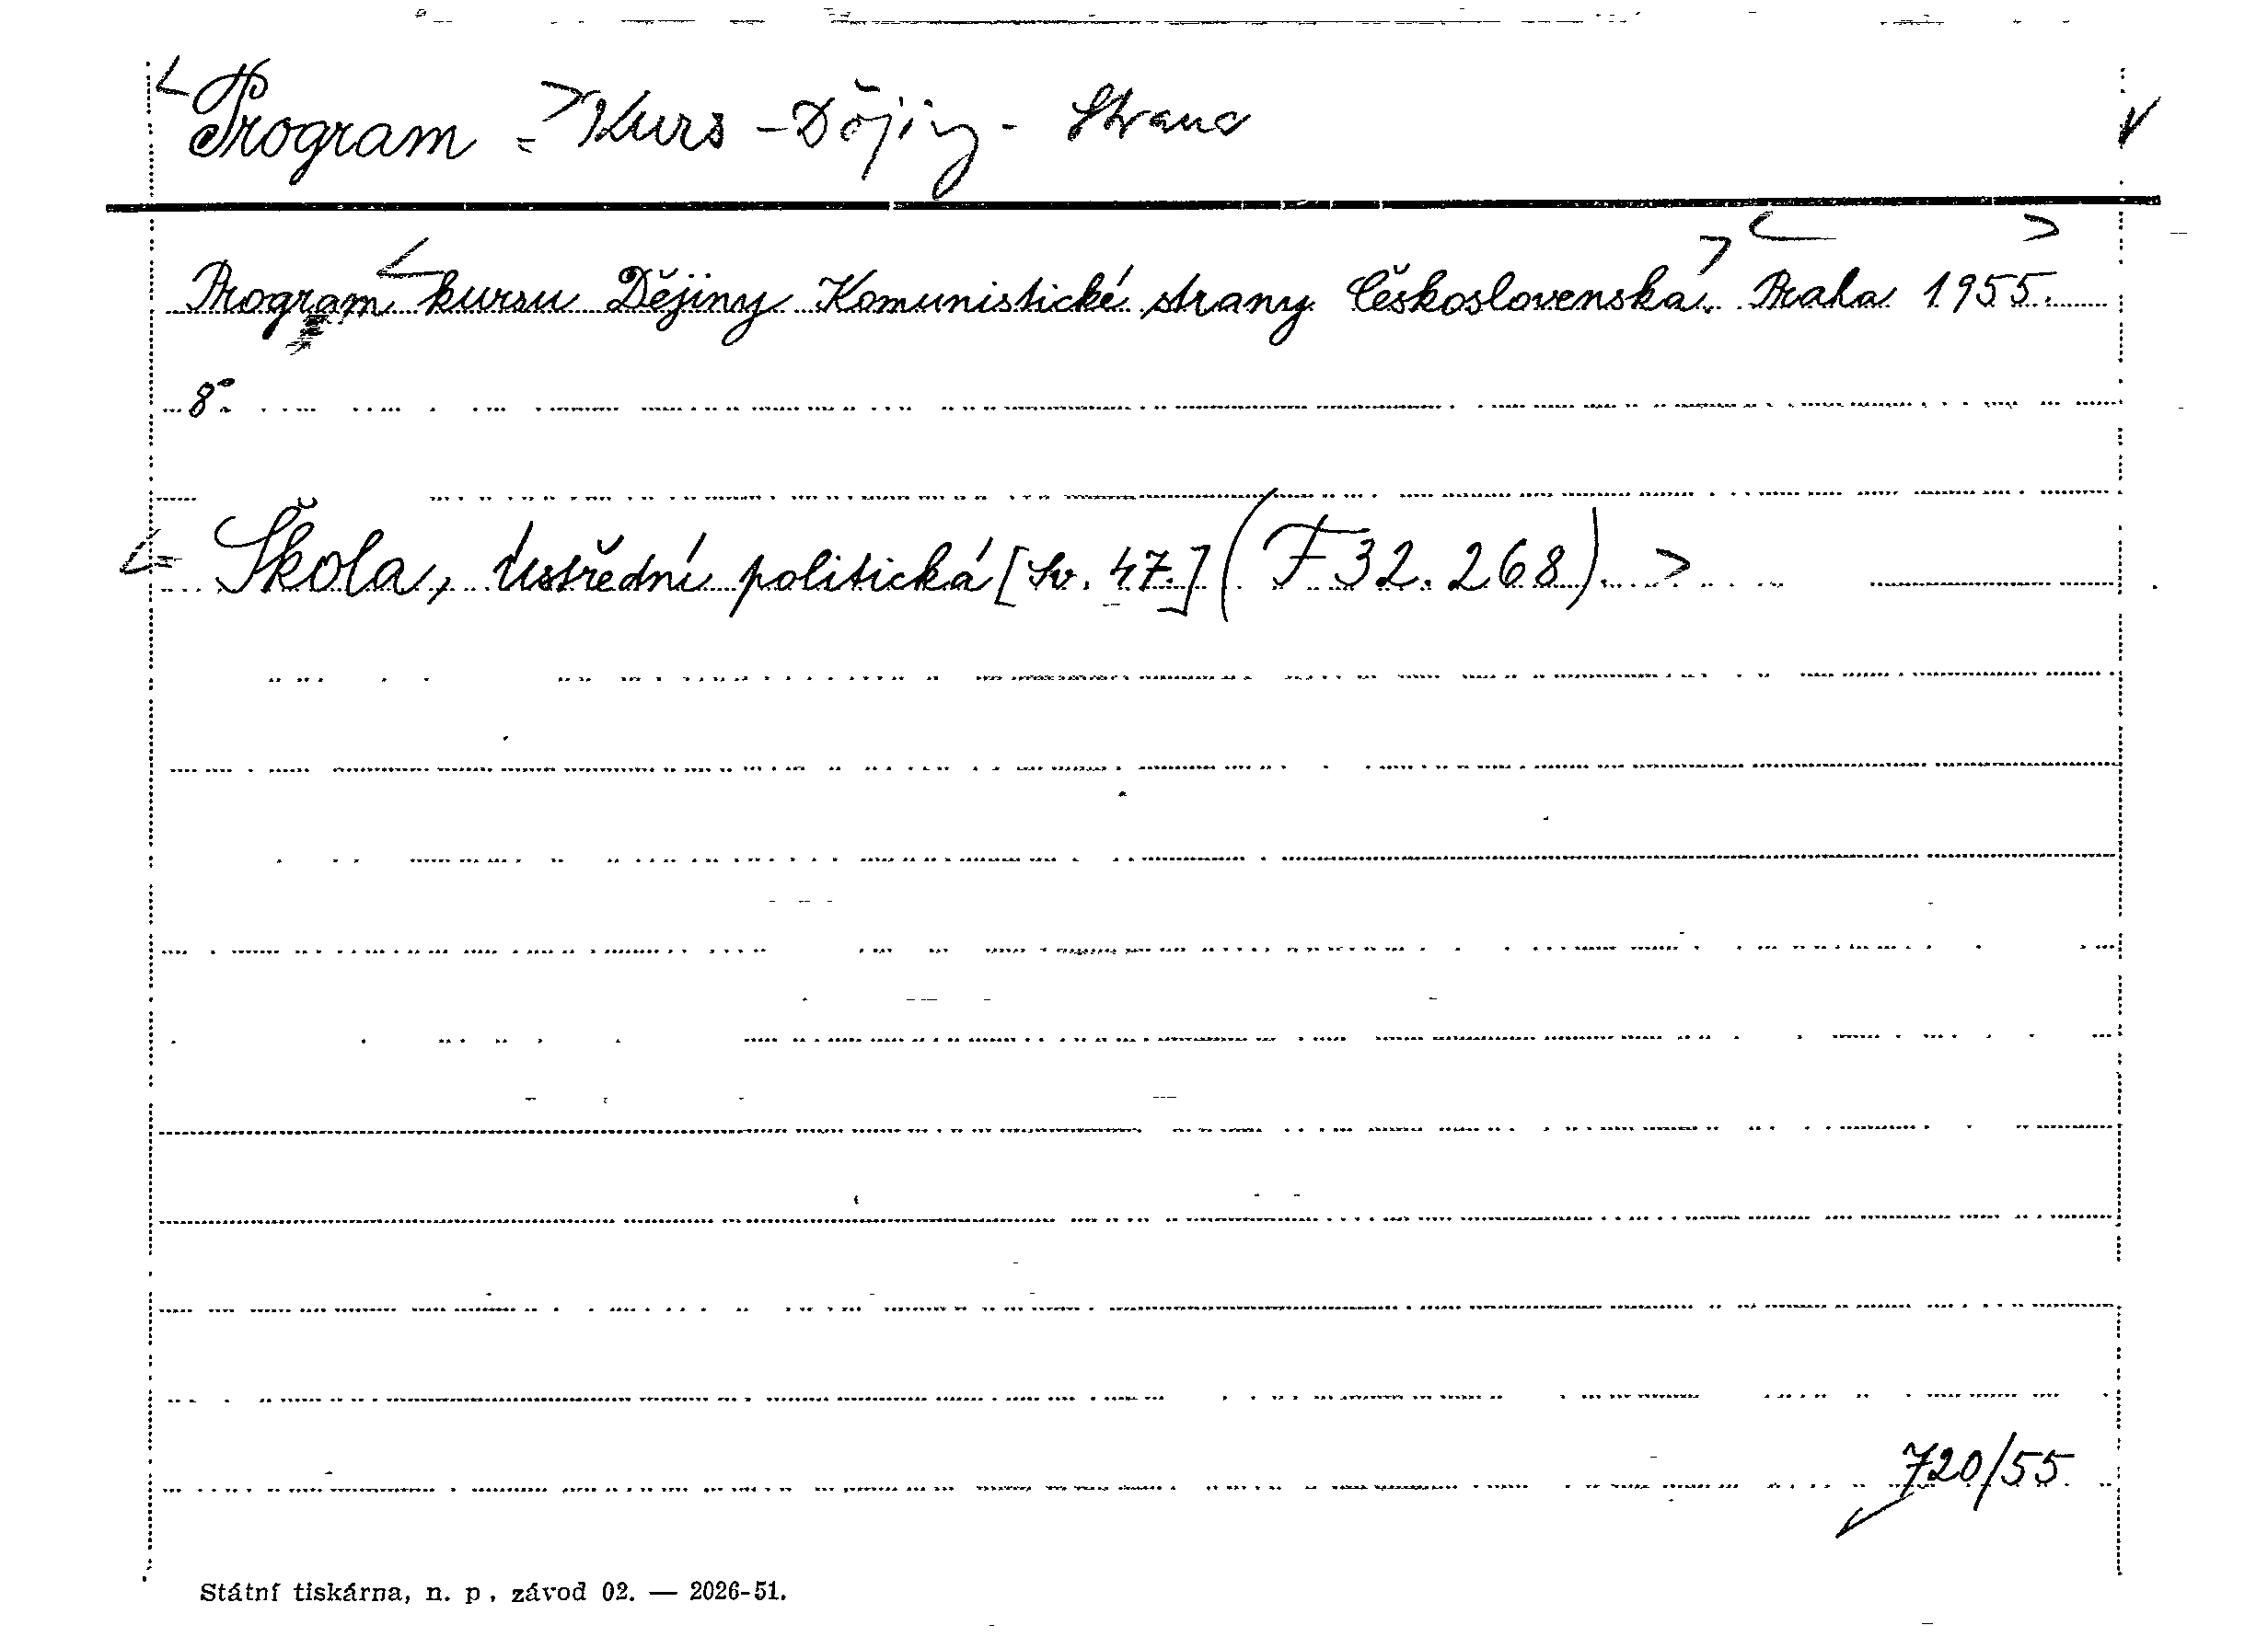 <Program => Kurs - Dějiny - Strana
Program <kursu Dějiny Komunistické strany Československa>. <Praha 1955.>
8°.
<Škola, Ústřední politická [Sv. 47.] (F 32.268).>
720/55
Státní tiskárna, n. p., závod 02. — 2026-51.